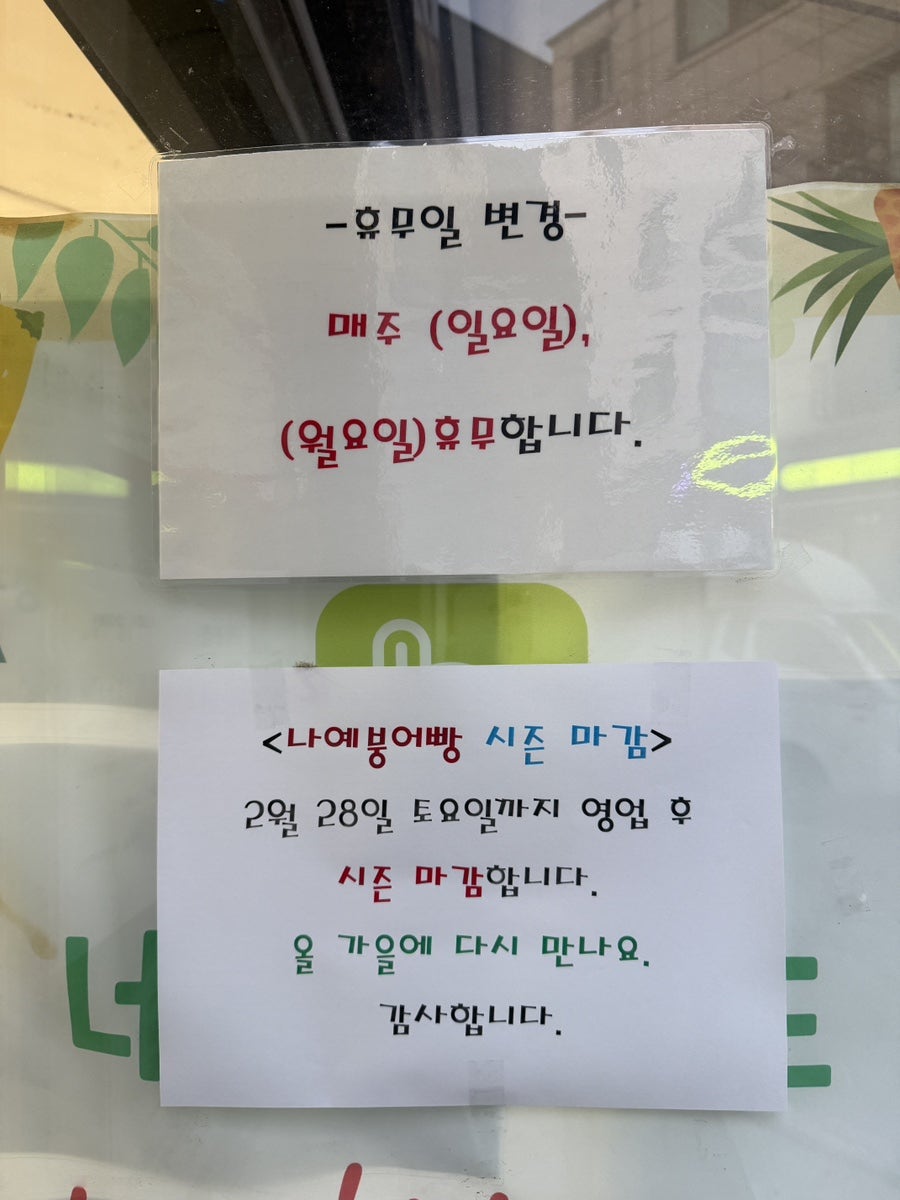 -휴무일 변경-
매주 (일요일),
(월요일)휴무합니다.
<나예붕어빵 시즌 마감>
2월 28일 토요일까지 영업 후
시즌 마감합니다.
올 가을에 다시 만나요.
감사합니다.